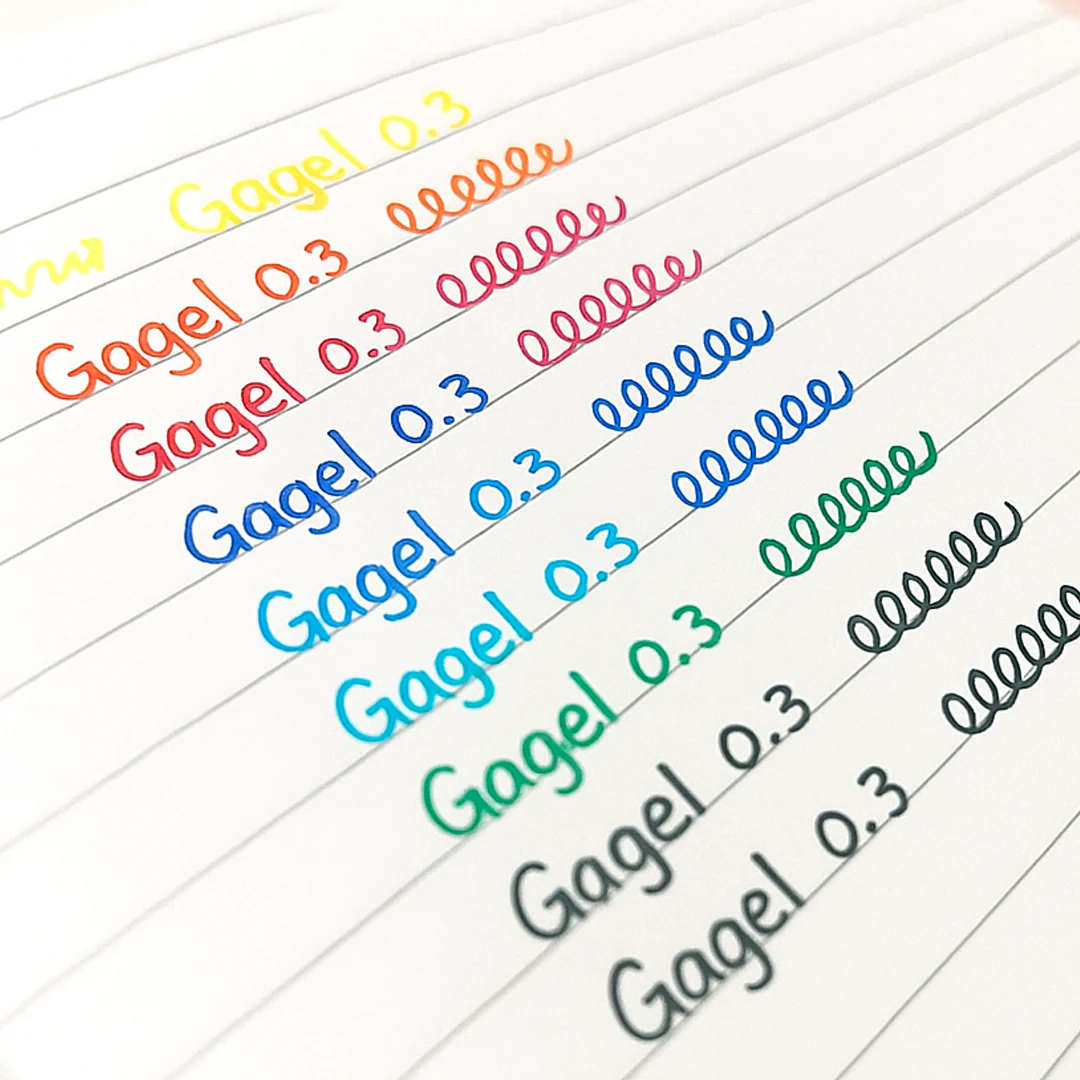 Gagel 0.3
Gagel 0.3
Gagel 0.3
Gagel 0.3
Gagel 0.3
Gagel 0.3
Gagel 0.3
Gagel 0.3
Gagel 0.3